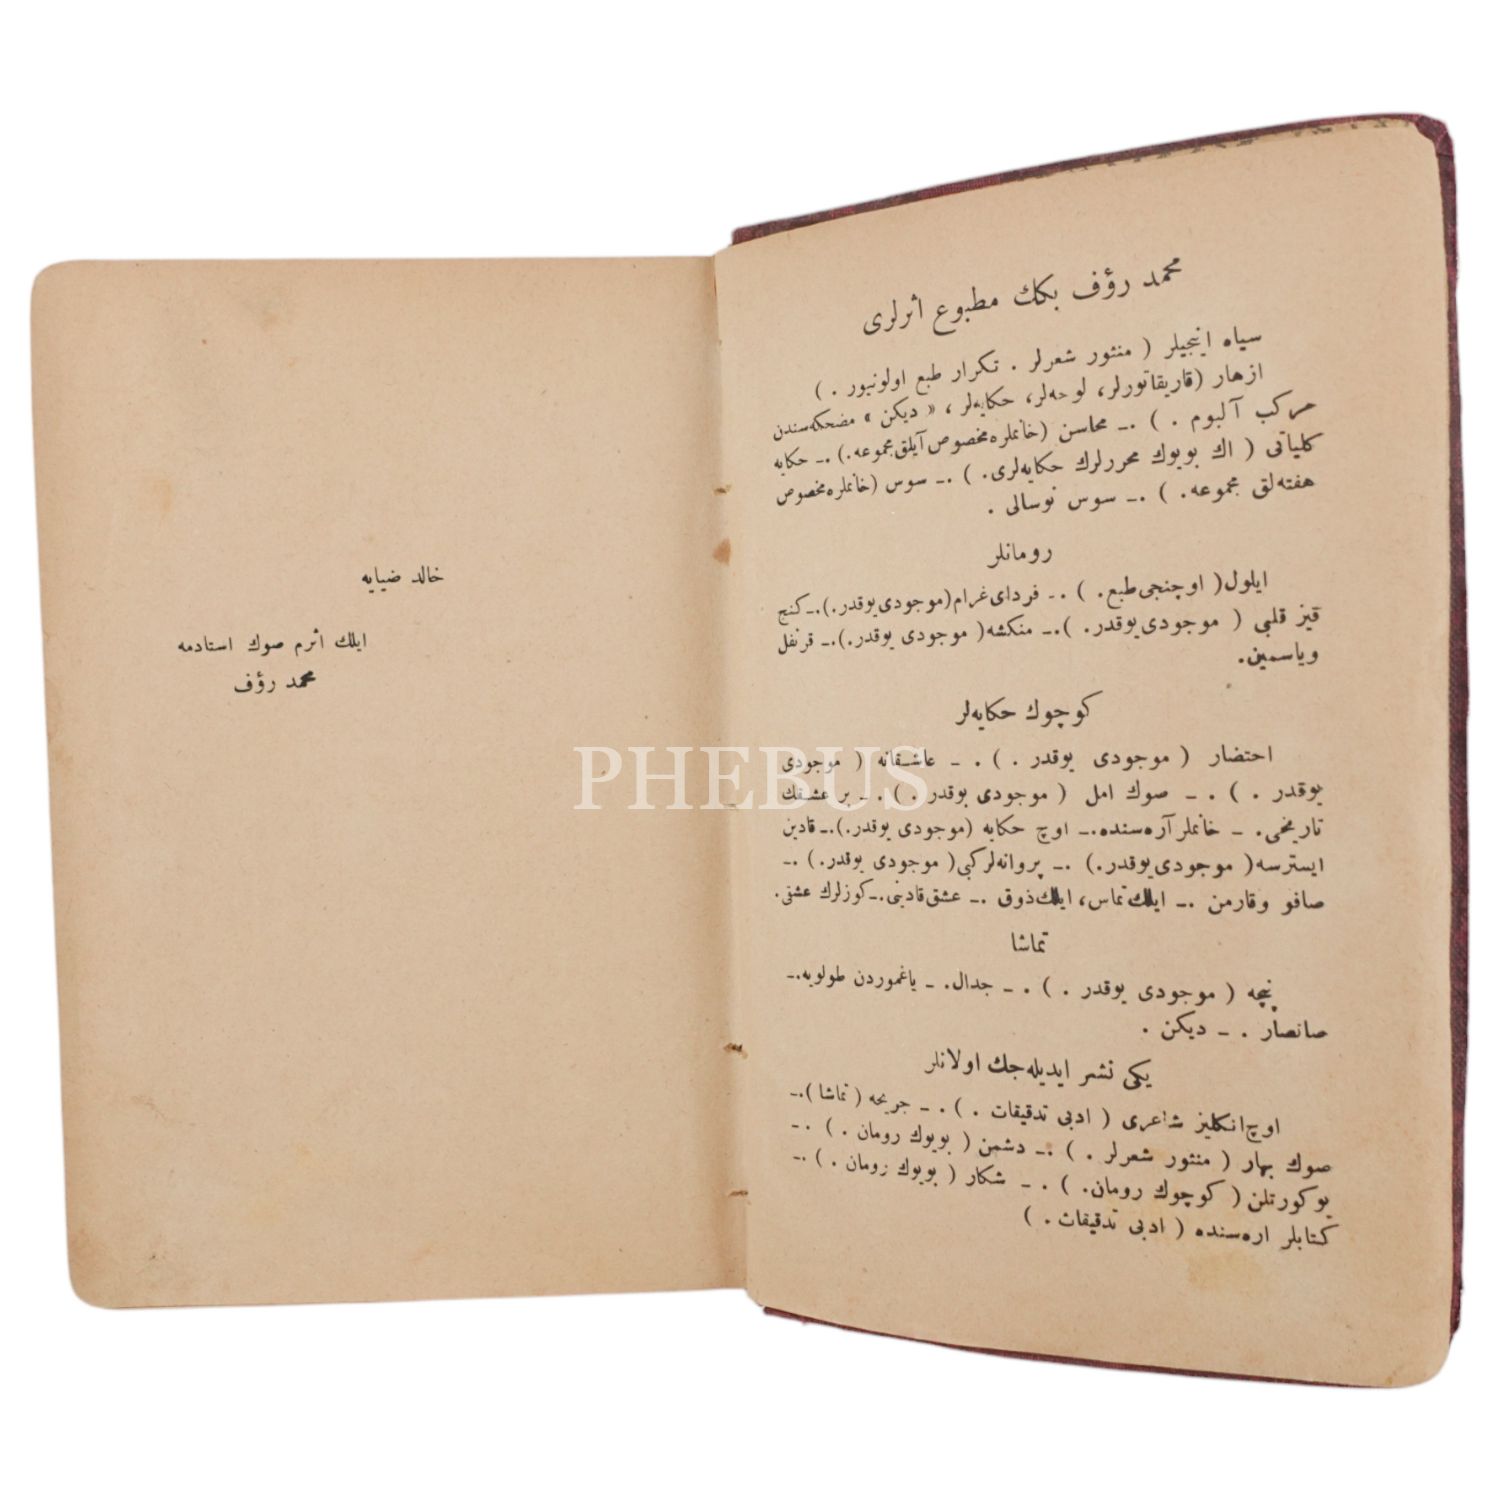 محمد رؤف بكك مطبوع اثرلری
سیاه اینجیلر ( منثور شعرلر . تكرار طبع اولونیور . )
ازهار (قاریقاتورلر، لوحه‌لر، حكایه‌لر ، « دیكن » مضحكه‌سندن
مركب آلبوم . ) ـ محاسن (خانملره مخصوص آیلق مجموعه.) ـ حكایه
كلیاتی ( اك بویوك محررلرك حكایه‌لری. ) ـ سوس (خانملره مخصوص
هفته‌لق مجموعه. ) ـ سوس نوسالی .
رومانلر
ایلول( اوچنجی طبع. ) ـ فردای غرام(موجودی یوقدر.) ـ كنج
قیز قلبی ( موجودی یوقدر. ) ـ منكشه( موجودی یوقدر.) ـ قرنفل
ویاسمین.
كوچوك حكایه‌لر
احتضار ( موجودی یوقدر . ) . ـ عاشقانه ( موجودی
یوقدر . ) . ـ صوك امل ( موجودی یوقدر . ) . ـ بر عشقك
تاریخی. ـ خانملر آره‌سنده. ـ اوچ حكایه (موجودی یوقدر.) ـ قادین
ایسترسه( موجودی یوقدر.) ـ پروانه‌لر كبی( موجودی یوقدر.) . ـ
صافو وقارمن . ـ ایلك تماس، ایلك ذوق . ـ عشق قادینی. ـ كوزلرك عشقی.
تماشا
پنچه ( موجودی یوقدر . ) . ـ جدال. ـ یاغموردن طولویه. ـ
صانصار . ـ دیكن .
یكی نشر ایدیله‌جك اولانلر
اوچ انكلیز شاعری ( ادبی تدقیقات . ) . ـ جریحه ( تماشا ). ـ
صوك بهار ( منثور شعرلر . ) . ـ دشمن ( بویوك رومان . ) . ـ
بوكورتلن ( كوچوك رومان. ) . ـ شكار ( بویوك رومان . ) . ـ
كتابلر اره‌سنده ( ادبی تدقیقات . )
خالد ضیایه
ایلك اثرم صوك استادمه
محمد رؤف
PHEBUS